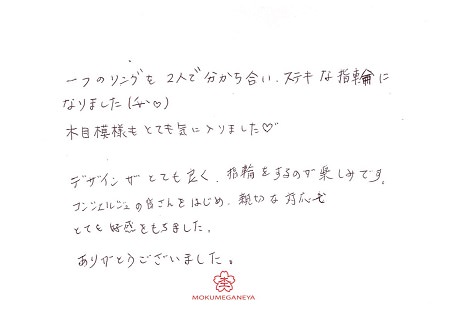 一つのリングを2人で分かち合い、ステキな指輪に
なりました(^-^♡)
木目模様もとても気に入りました♡
デザインがとても良く、指輪をするのが楽しみです。
コンシェルジュの皆さんをはじめ、親切な対応も
とても好感をもちました。
ありがとうございました。
MOKUMEGANEYA